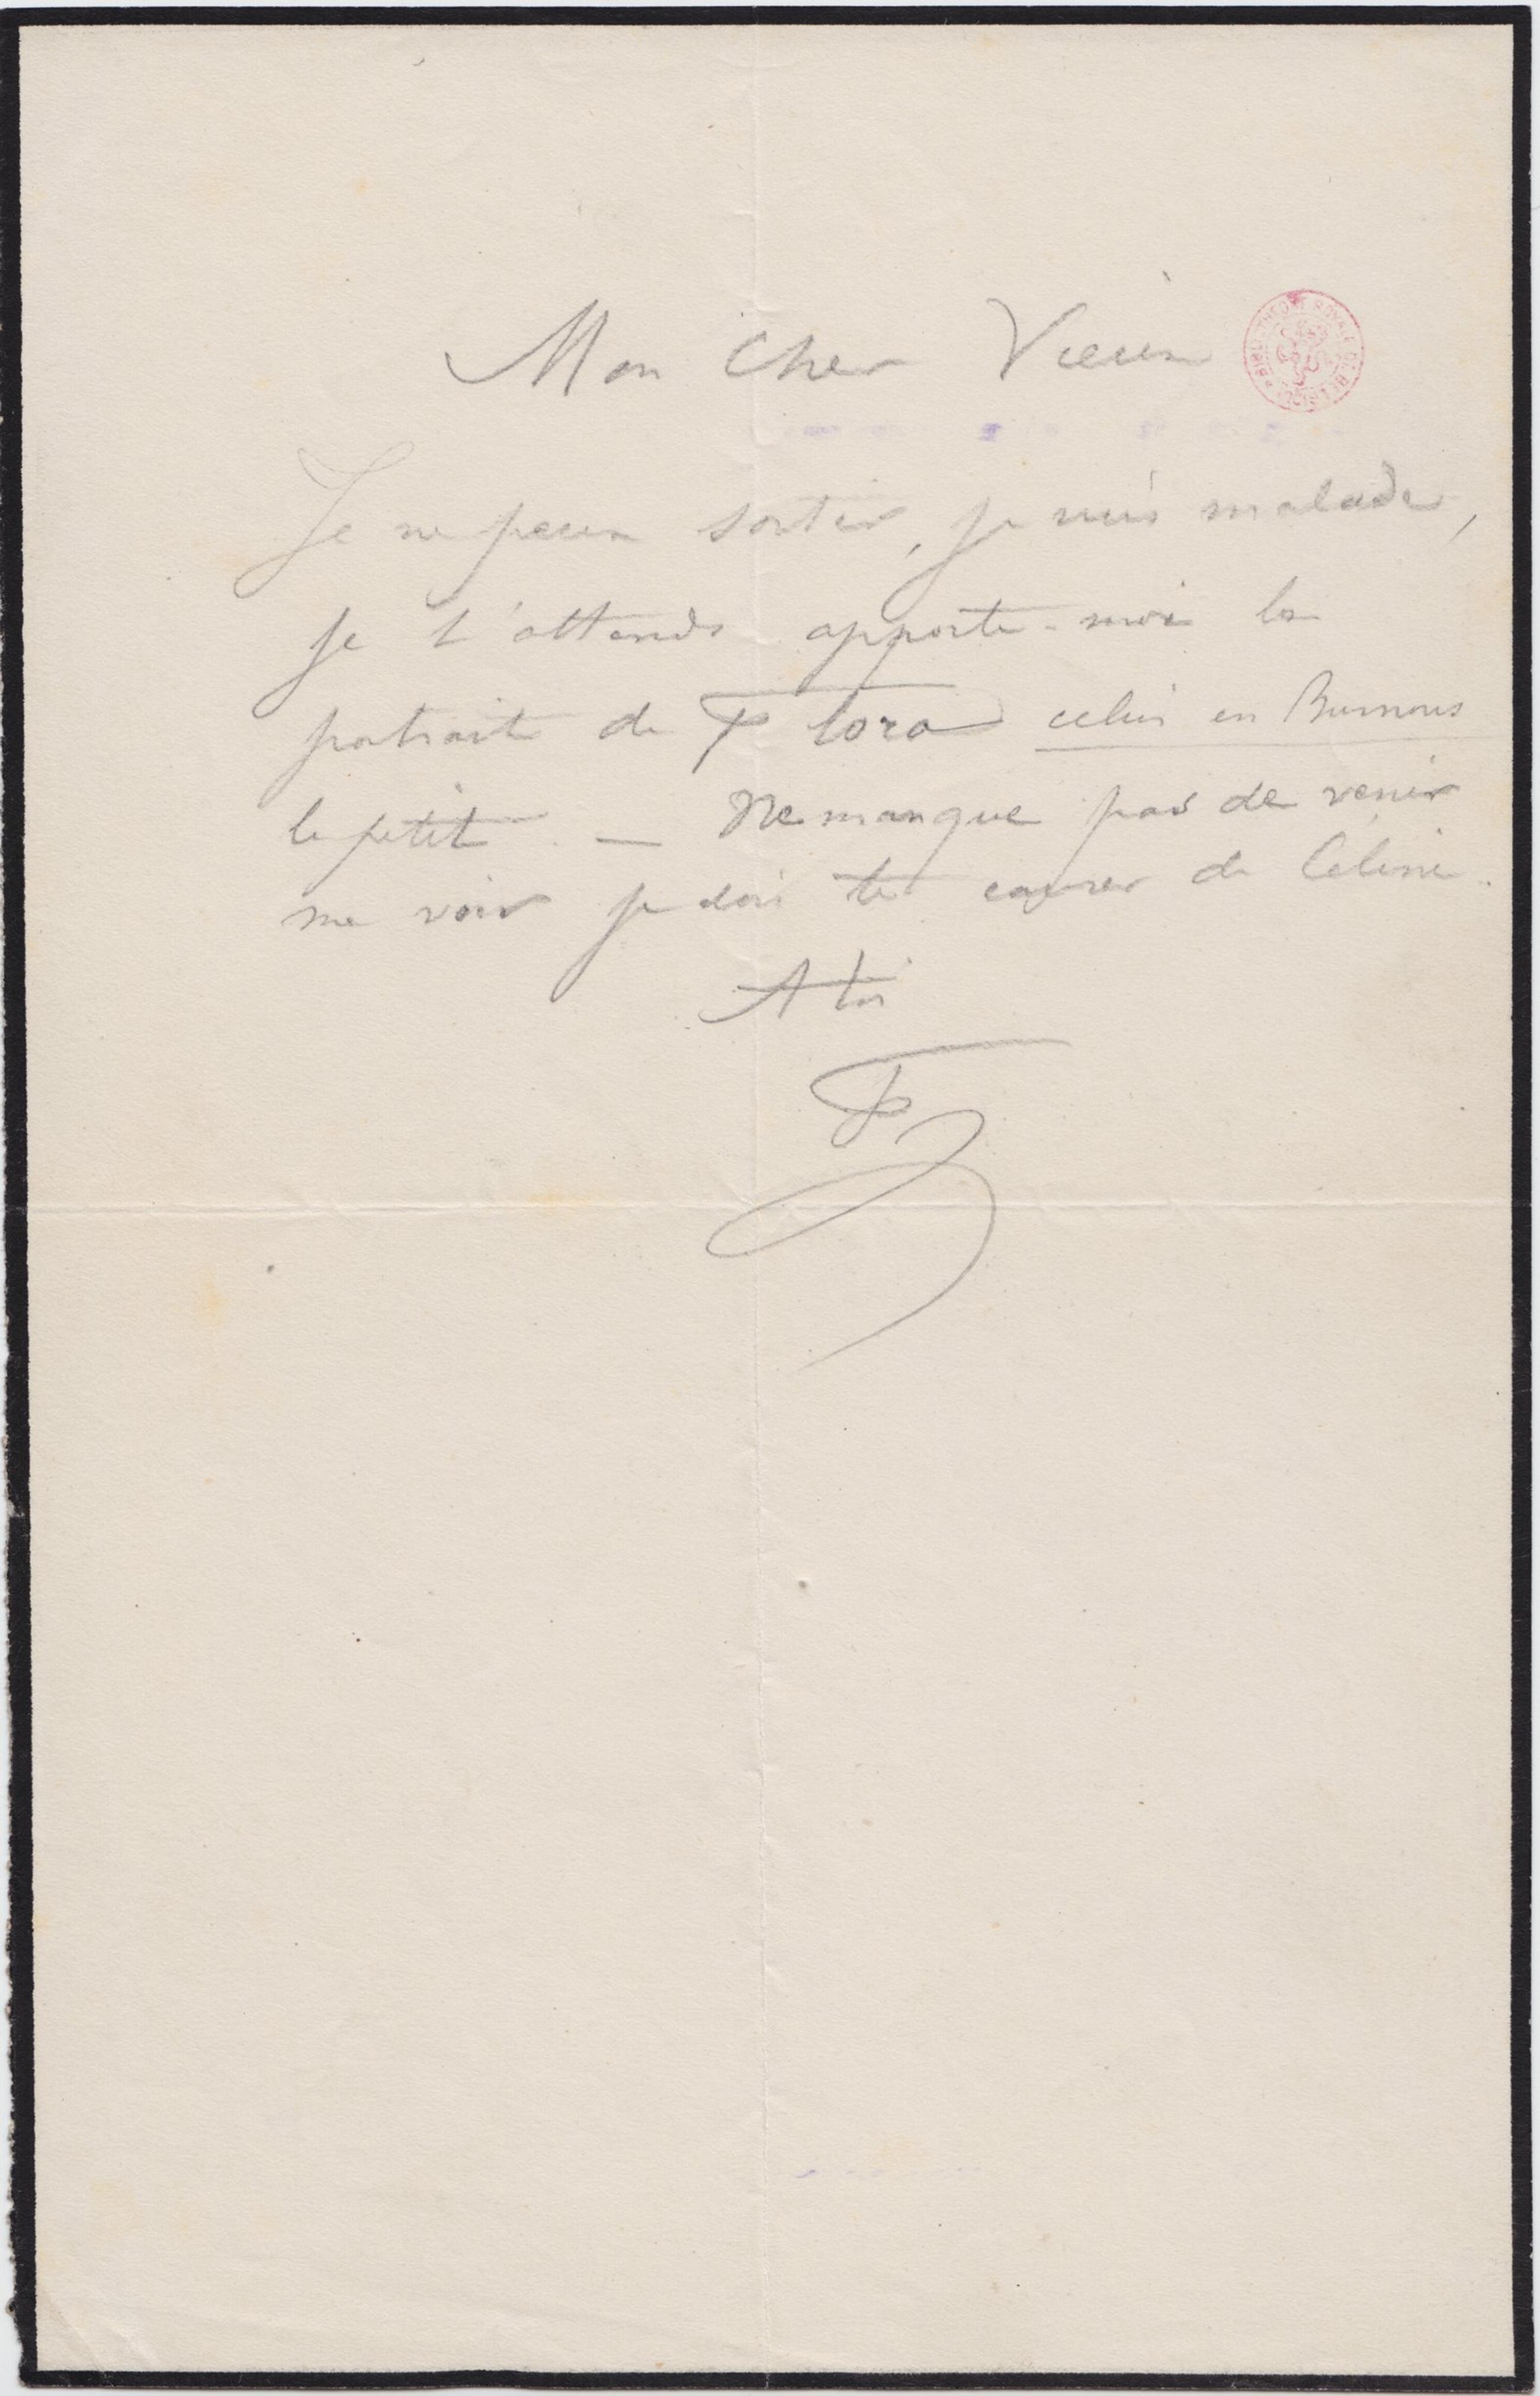 Mon Cher Vieux
Je ne peux sortir, je suis malade,
je t'attends apporte-moi les
portraits de Flora celui en Burnous
le petit. — Ne manque pas de venir
me voir je dois te causer de Céline.
A toi
F